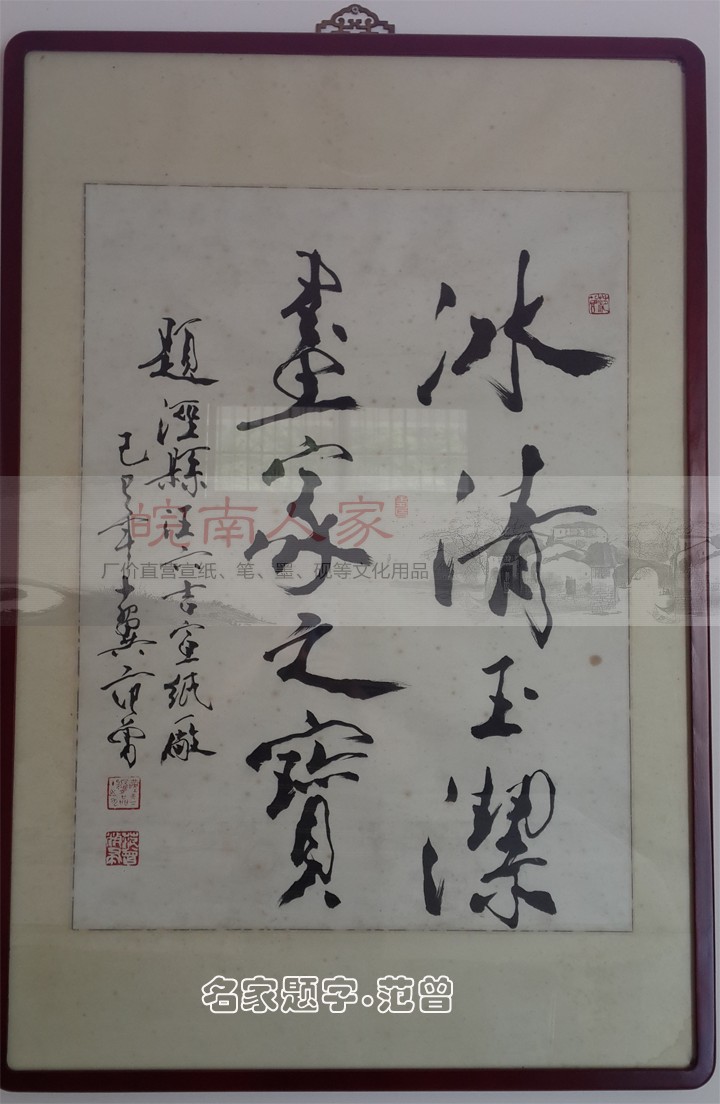 冰清玉潔
畫家之寶
題涇縣汪六吉宣紙廠
己巳年十翼范曾
皖南人家
厂价直营宣纸、笔、墨、砚等文化用品
名家题字·范曾